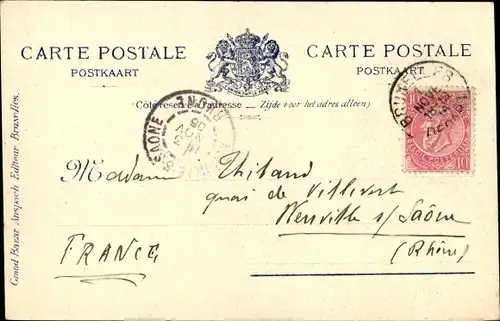 CARTE POSTALE
POSTKAART
CARTE POSTALE
POSTKAART
(Côté réservé à l'adresse — Zijde voor het adres alleen)
BRUXELLES
10
Madame Thiland
quai de Villevert
Neuville s/Saône
(Rhône)
FRANCE
Grand Bazar Anspach Editeur Bruxelles.